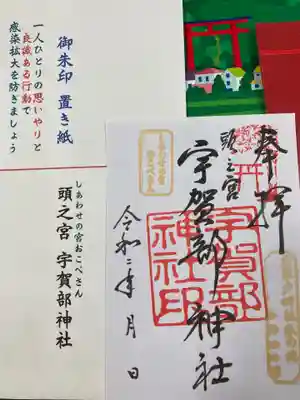 御朱印 置き紙
一人ひとりの思いやりと
良識ある行動で
感染拡大を防ぎましょう
しあわせの宮おこべさん
頭之宮 宇賀部神社
奉拝
頭之宮
宇賀部神社
宇賀部
神社印
令和二年 月 日